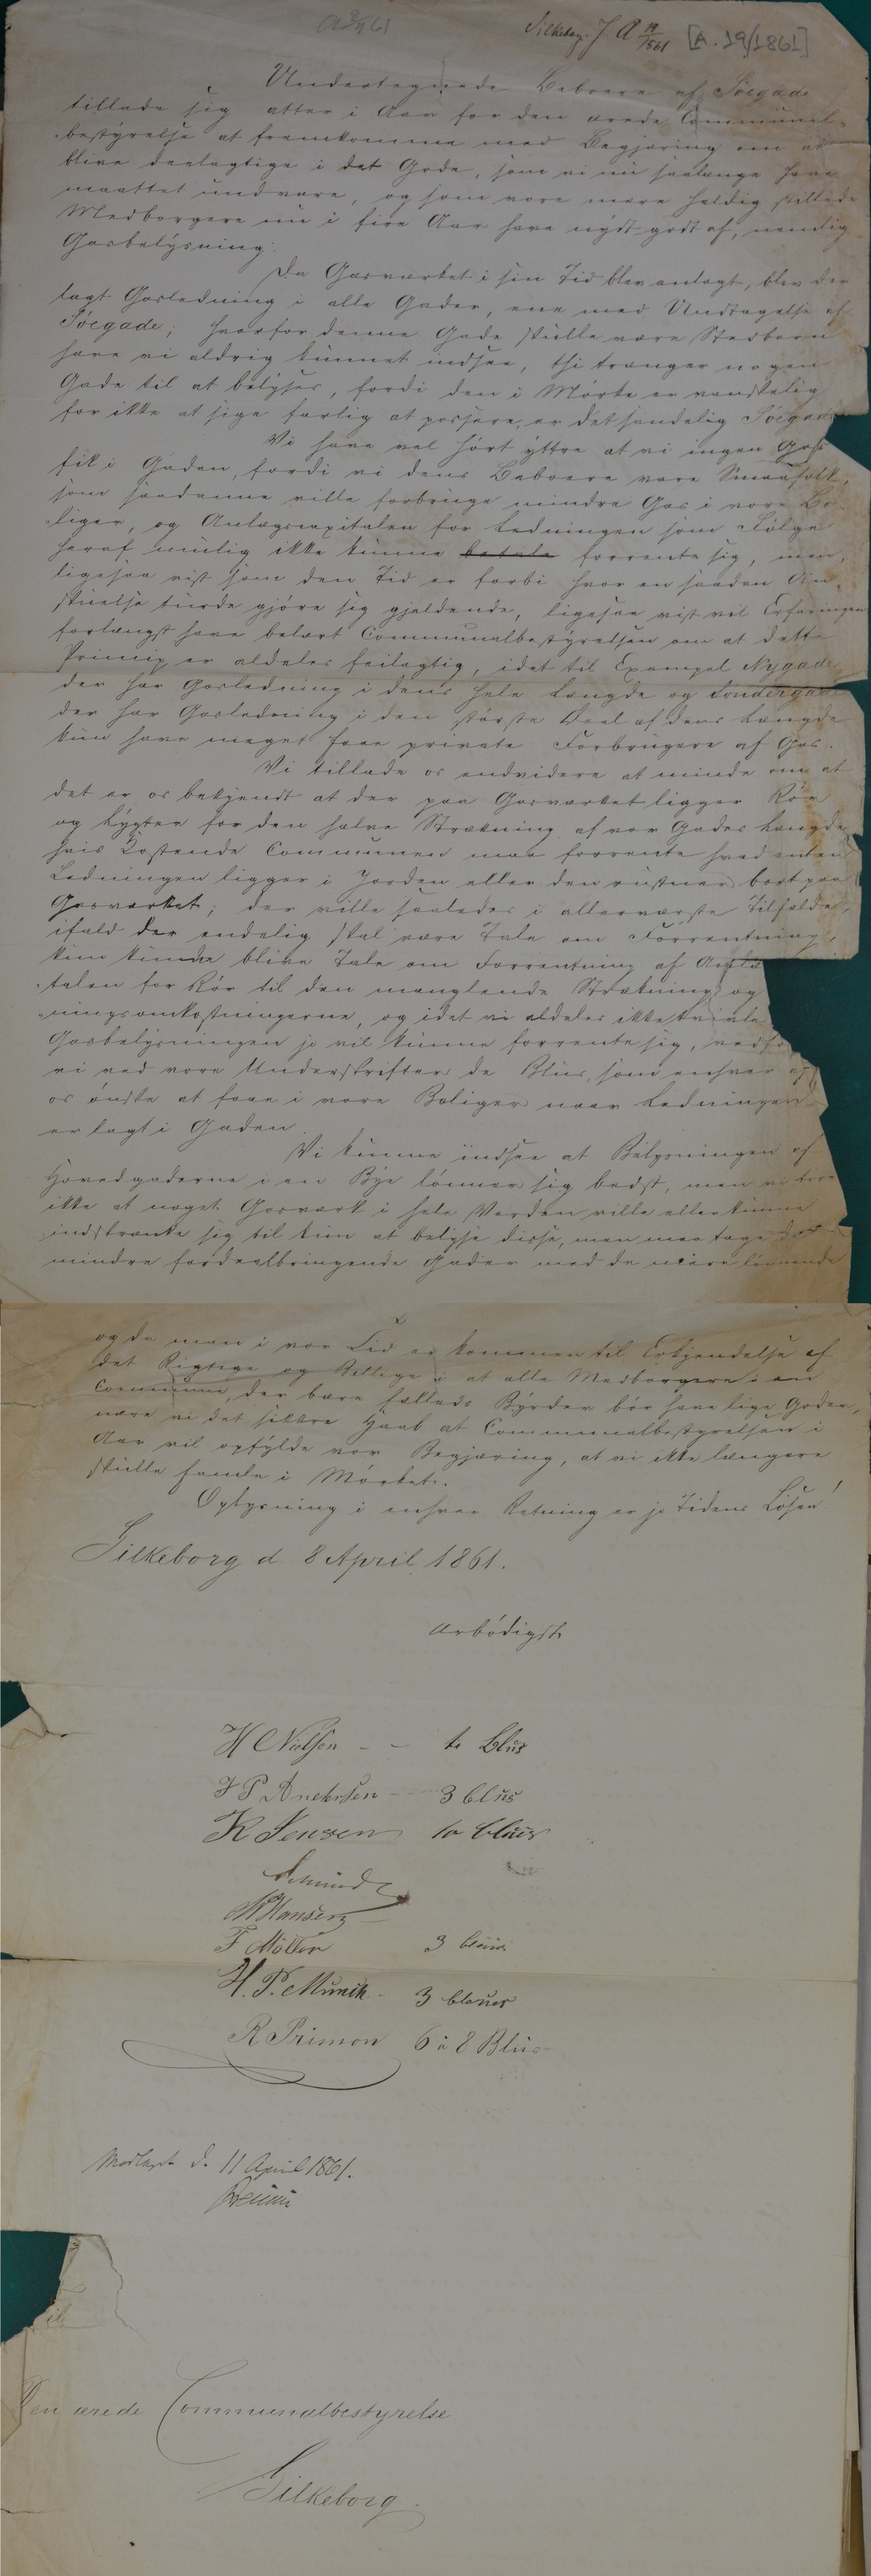 Silkeborg J A 19/1861 [A. 19/1861]
Undertegnede Beboere af Söegade
tillade sig atter i Aar for den ærede Communal-
-bestÿrelse at fremkomme med Begjæring om at
blive deelagtige i det Gode, som vi nu saalænge have
maattet undvære, og som vore mere heldig stillede
Medborgere nu i fire Aar have nÿdt godt af, nemlig
Gasbelÿsning.
Da Gasværket i sin Tid blev anlagt, blev der
lagt Gasledning i alle Gader, ene med Undtagelse af
Söegade; hvorfor denne Gade skulle være Stedbarn
have vi aldrig kunnet indsee, thi trænger nogen
Gade til at belÿses, fordi den i Mörke er vanskelig
for ikke at sige farlig at passere, er det sandelig Söegade
Vi have vel hört ÿttre at vi ingen Gas
fik i Gaden, fordi vi dens Beboere vare Smaafolk,
som saadanne ville forbruge mindre Gas i vore Bo-
-liger, og Anlægscapitalen for Ledningen som Fölge
heraf mulig ikke kunne betale forrente sig, men,
ligesaa vist som den Tid er forbi hvor en saadan An-
skuelse turde gjöre sig gjældende, ligesaa vist vil Erfaringen
forlængst have belært Communalbestÿrelsen om at dette
Princip er aldeles feilagtig, idet til Exempel Nÿgade
der har Gasledning i dens hele Længde og Söndergade
der har Gasledning i den störste Deel af dens Længde
kun have meget faae private Forbrugere af Gas.
Vi tillade os endvidere at minde om at
det er os bekjendt at der paa Gasværket ligger Rör
og Lÿgter for den halve Strækning af vor Gades Længde
hvis Kostende Communen maa forrente hvad enten
Ledningen ligger i Jorden eller den rustner bort paa
Gasværket; der ville saaledes i allerværste Tilfælde,
ifald der endelig skal være Tale om Forrentning,
kun kunde blive Tale om Forrentning af Anlæ
-talen for Rör til den manglende Strækning og
-ningsomkostningerne, og idet vi aldeles ikke tvivle
Gasbelÿsningen jo vil kunne forrente sig, vedfö
vi ved vore Underskrifter de Blus, som enhver af
os önske at faae i vore Boliger naar Ledningen
er lagt i Gaden.
Vi kunne indsee at Belysningen af
Hovedgaderne i en Bÿe lönner sig bedst, men vi troe
ikke at noget Gasværk i hele Verden ville eller kunne
indskrænke sig til kun at belÿse disse, men maa tage de
mindre fordeelbringende Gader med de mere lönnende
og da man i vor Tid er kommen til Erkjendelse af
det Rigtige og Billige i at alle Medborgere i en
Commune, der bære fælleds Bÿrder bör have lige Goder,
nære vi det sikkre Haab at Communalbestyrelsen i
Aar vil opfÿlde vor Begjæring, at vi ikke længere
skulle famle i Mörket.
Oplysning i enhver Retning er jo Tidens Lösen!
Silkeborg d 8 April 1861.
Ærbödigst
H Nielsen - - to Blus
J P Andersen - 3 blus
K Jensen to blus
Schmidt
M Hansen
F Möller 3 blus
H. P. Munck - 3 bluus
R Primon 6 à 8 Blus
Modtaget d. 11 April 1861.
Til
Den ærede Communalbestyrelse
Silkeborg.